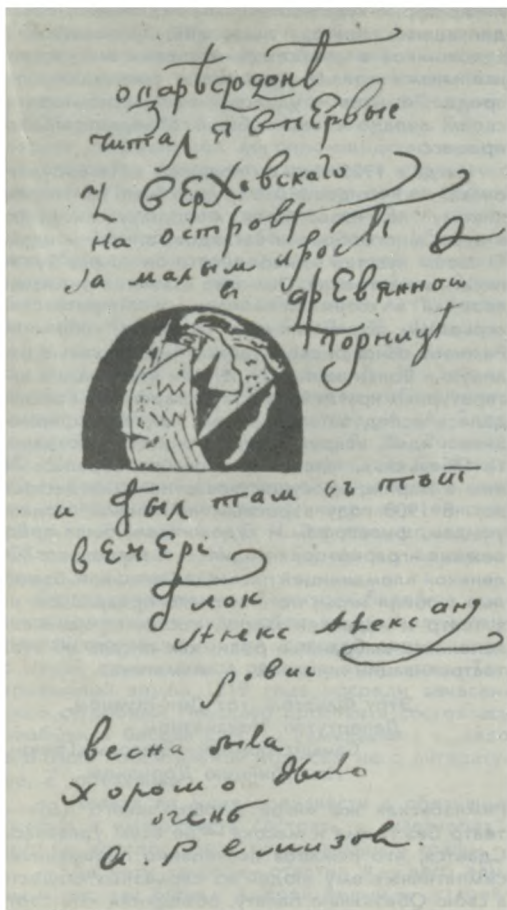 о царѣ Додонѣ
читал я впервые
у Верховскаго
на островѣ
за малым
в деревянной
горницѣ
и был там въ тот
вечеръ
Блок
Алекс Александ
рович
весна была
хорошо было
очень
А. Ремизов.